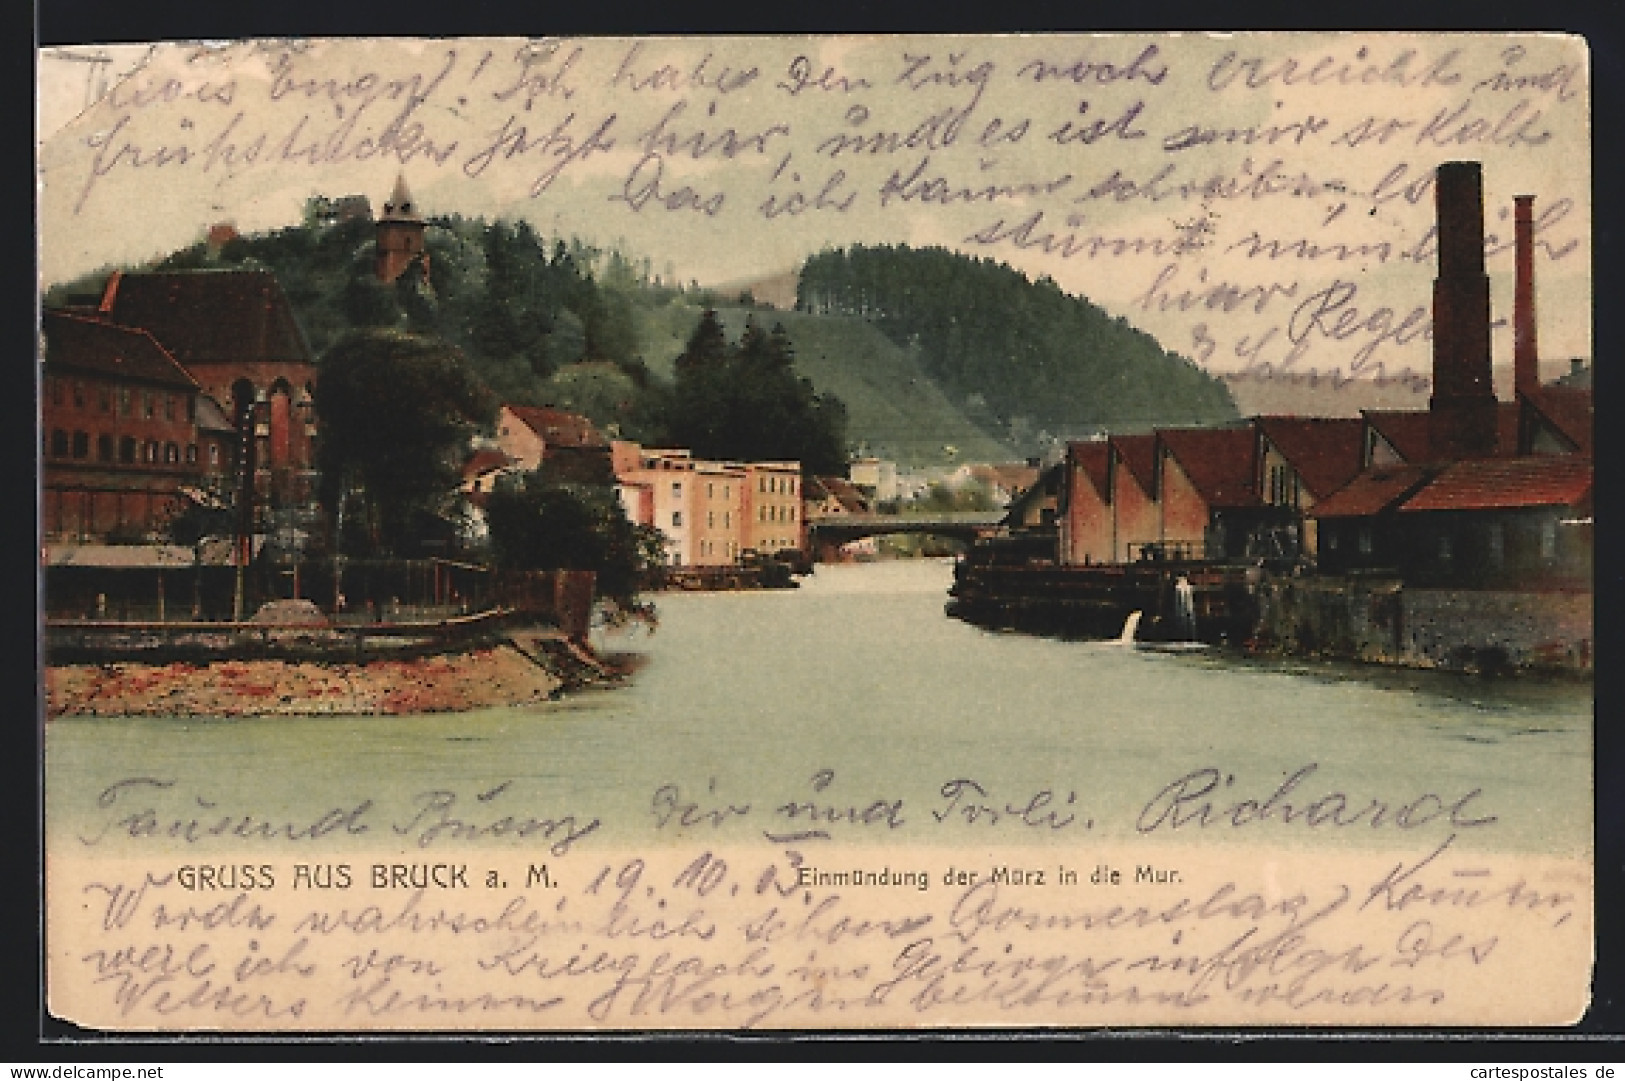 Liebes Engerl! Ich habe den Zug noch erreicht und
frühstücke jetzt hier, und es ist mir so kalt
das ich kaum schreiben. Es
stürmt nämlich
hier Regen
& Schnee
Tausend Bussy Dir und Trrli. Richard
GRUSS AUS BRUCK a. M. 19. 10. 03. Einmündung der Mürz in die Mur.
Werde wahrscheinlich schon Donnerstag kom̅en,
weil ich von Krieglach ins Gebirge infolge des
Wetters keinen Wagen bekom̅en werde
cartespostales de